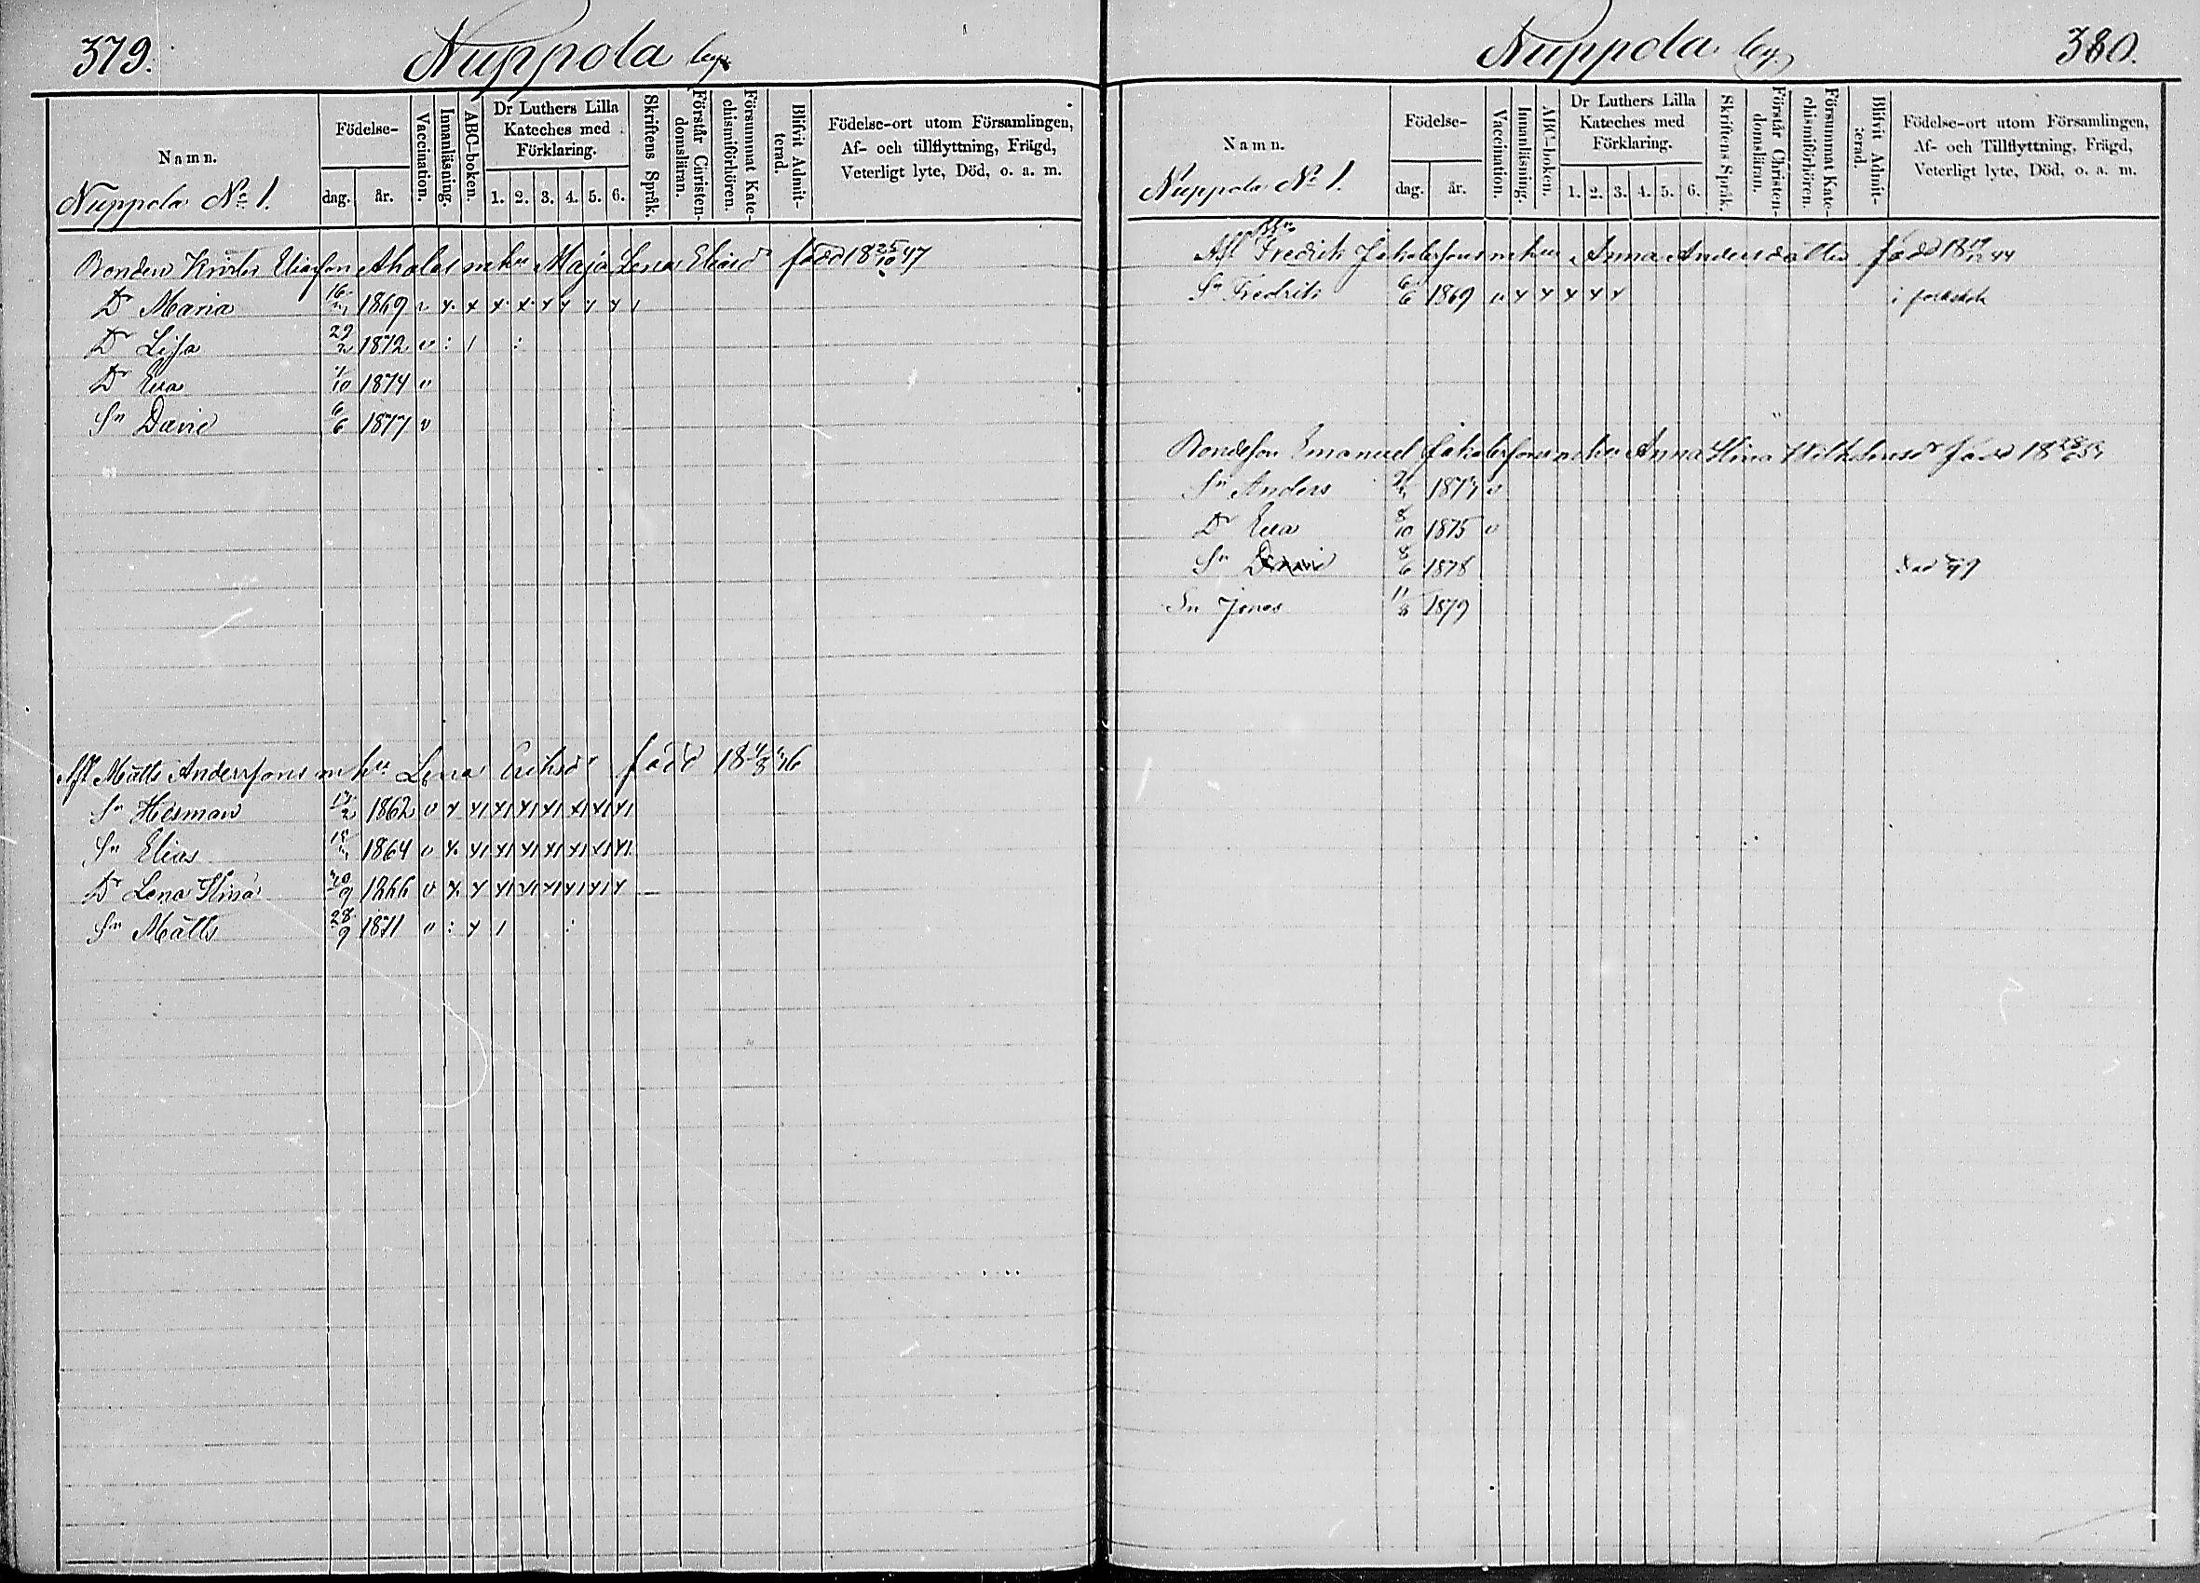 379.
Nuppola by
Namn.
Födelse-
dag.
år.
Vaccination.
Innanläsning.
ABC-boken.
Dr Luthers Lilla
Kateches med
Förklaring.
1. 2. 3. 4. 5. 6.
Skriftens Språk.
Förstår Christen-
domsläran.
Försummat Kate-
chismiförhören.
Blifvit Admit-
terad.
Födelse-ort utom Församlingen,
Af- och tillflyttning, Frägd,
Veterligt lyte, Död, o. a. m.
Nuppola No 1.
Bonden Eliasson Ahola m hu Maja Lena Eliasd född 18 25/10 47
Dr Maria 1869 v x x x x x x x x
Dr Lisa 29/2 1872 v : /
Dr Eva 1/10 1874 v
Sn David 6/6 1877 v
Afl Matts Anderssons m hu Lena Eriksdr född 18 36
Sn Herman 1862 v x x x x x x x x
Sn Elias 1864 v x x x x x x x x
Dr Lena Stina 1866 v x x x x x x x x —
Sn Matts 28/9 1871 v : x /
Nuppola by
380.
Namn.
Födelse-
dag.
år.
Vaccination.
Innanläsning.
ABC-boken.
Dr Luthers Lilla
Kateches med
Förklaring.
1. 2. 3. 4. 5. 6.
Skriftens Språk.
Förstår Christen-
domsläran.
Försummat Kate-
chismiförhören.
Blifvit Admit-
terad.
Födelse-ort utom Församlingen,
Af- och Tillflyttning, Frägd,
Veterligt lyte, Död, o. a. m.
Nuppola No 1.
Afl Fredrik Jakobssons m hu Anna Andersdotter född 18 44
Sn Fredrik 6/6 1869 v x x x x x i
Bondeson Emanuel Jakobsson m hu Anna Stina född 18
Sn Anders v
Dr Eva 8/10 1875 v
Sn David 8/6 1878 död 79
Sn Jonas 11/8 1879